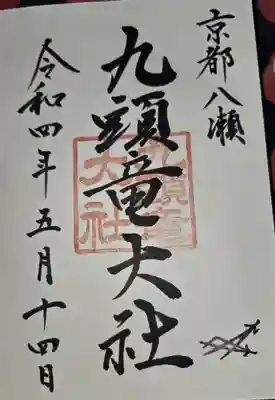 京都八瀬
九頭竜大社
令和四年五月十四日
九頭竜
大社